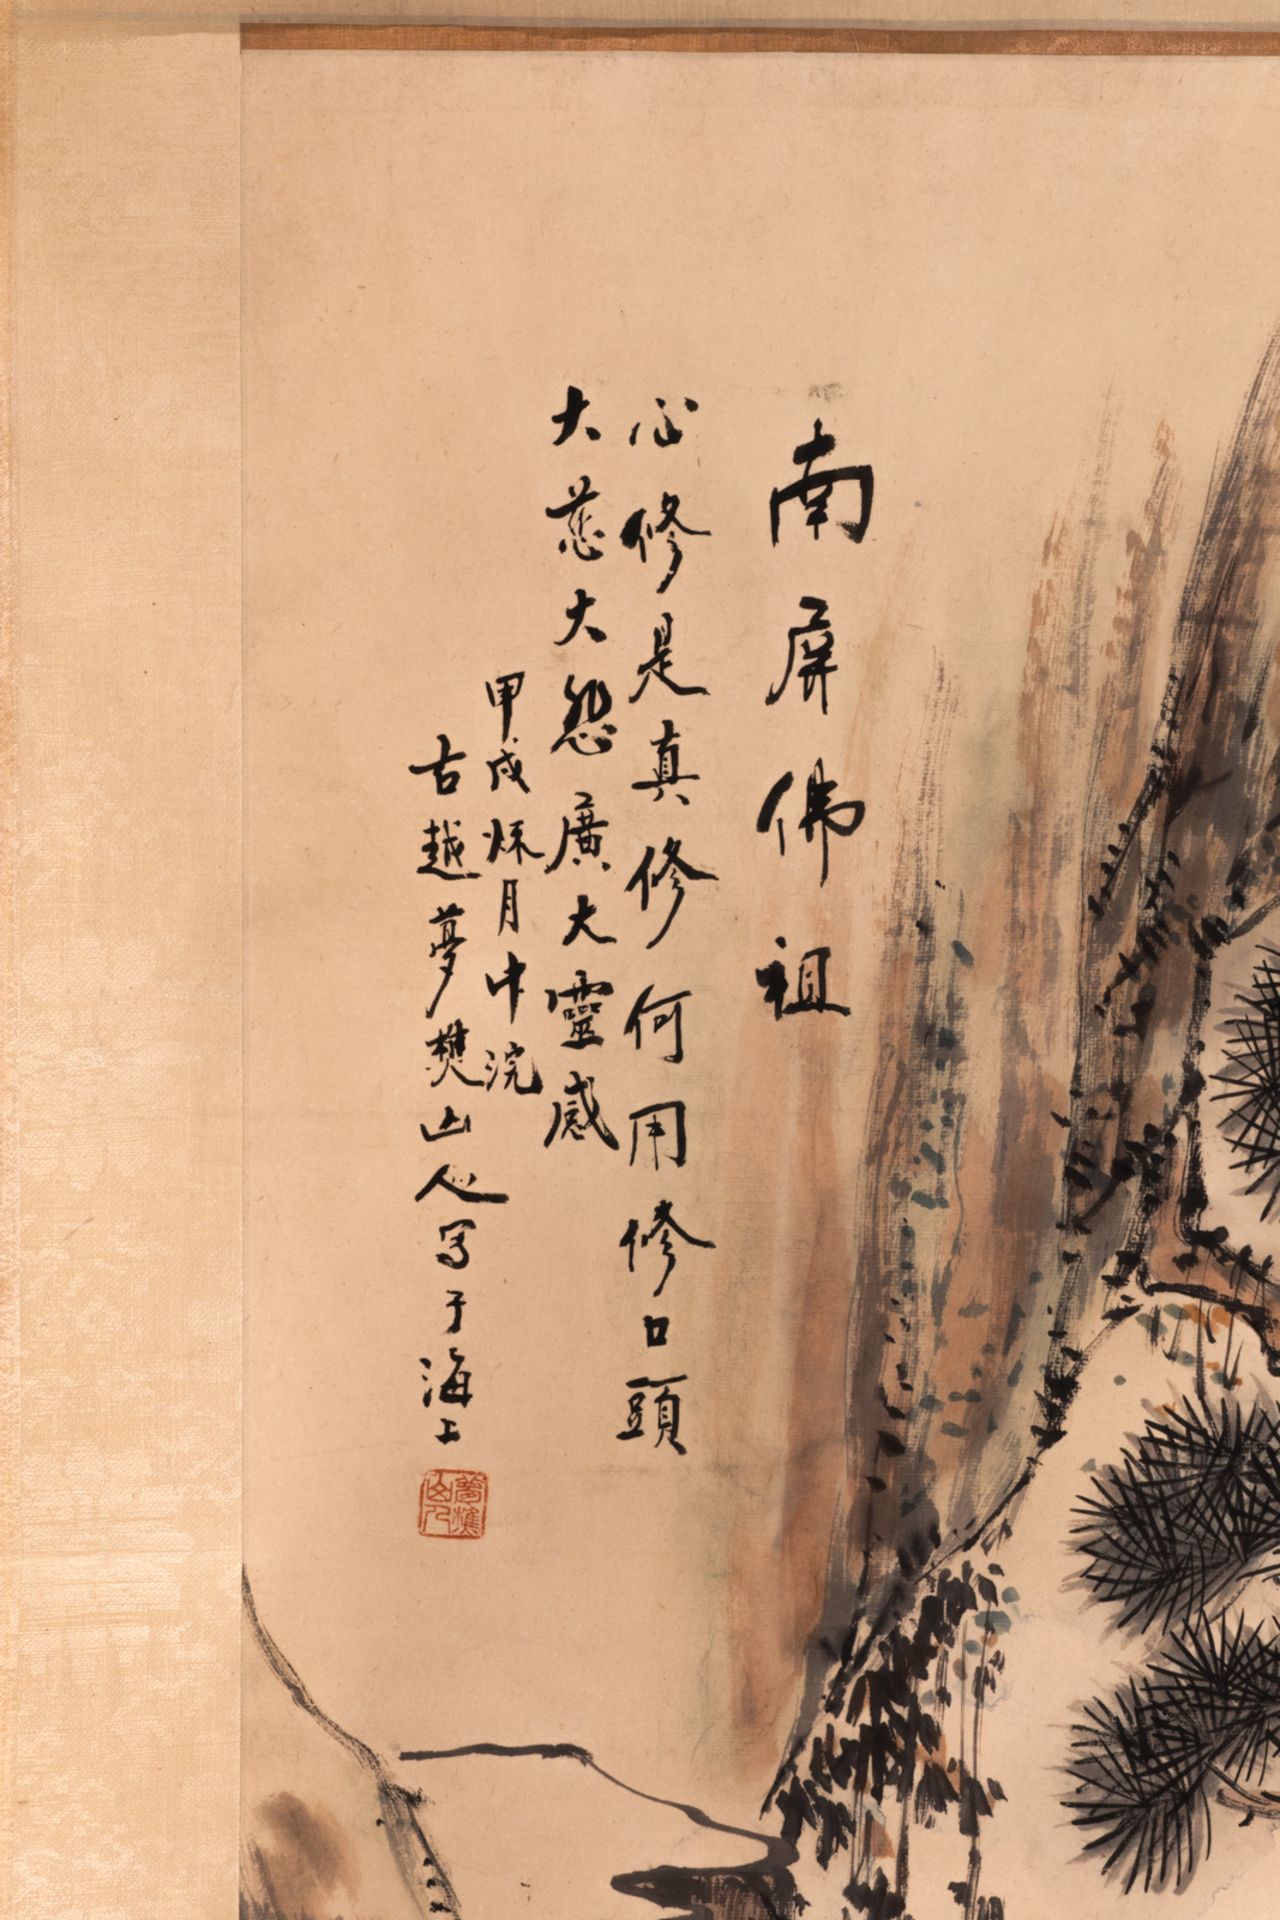 南屏佛祖
心修是真修何用修口頭
大慈大悲廣大靈感
甲戌烁月中浣
古越夢樵山人写于海上
夢樵山人